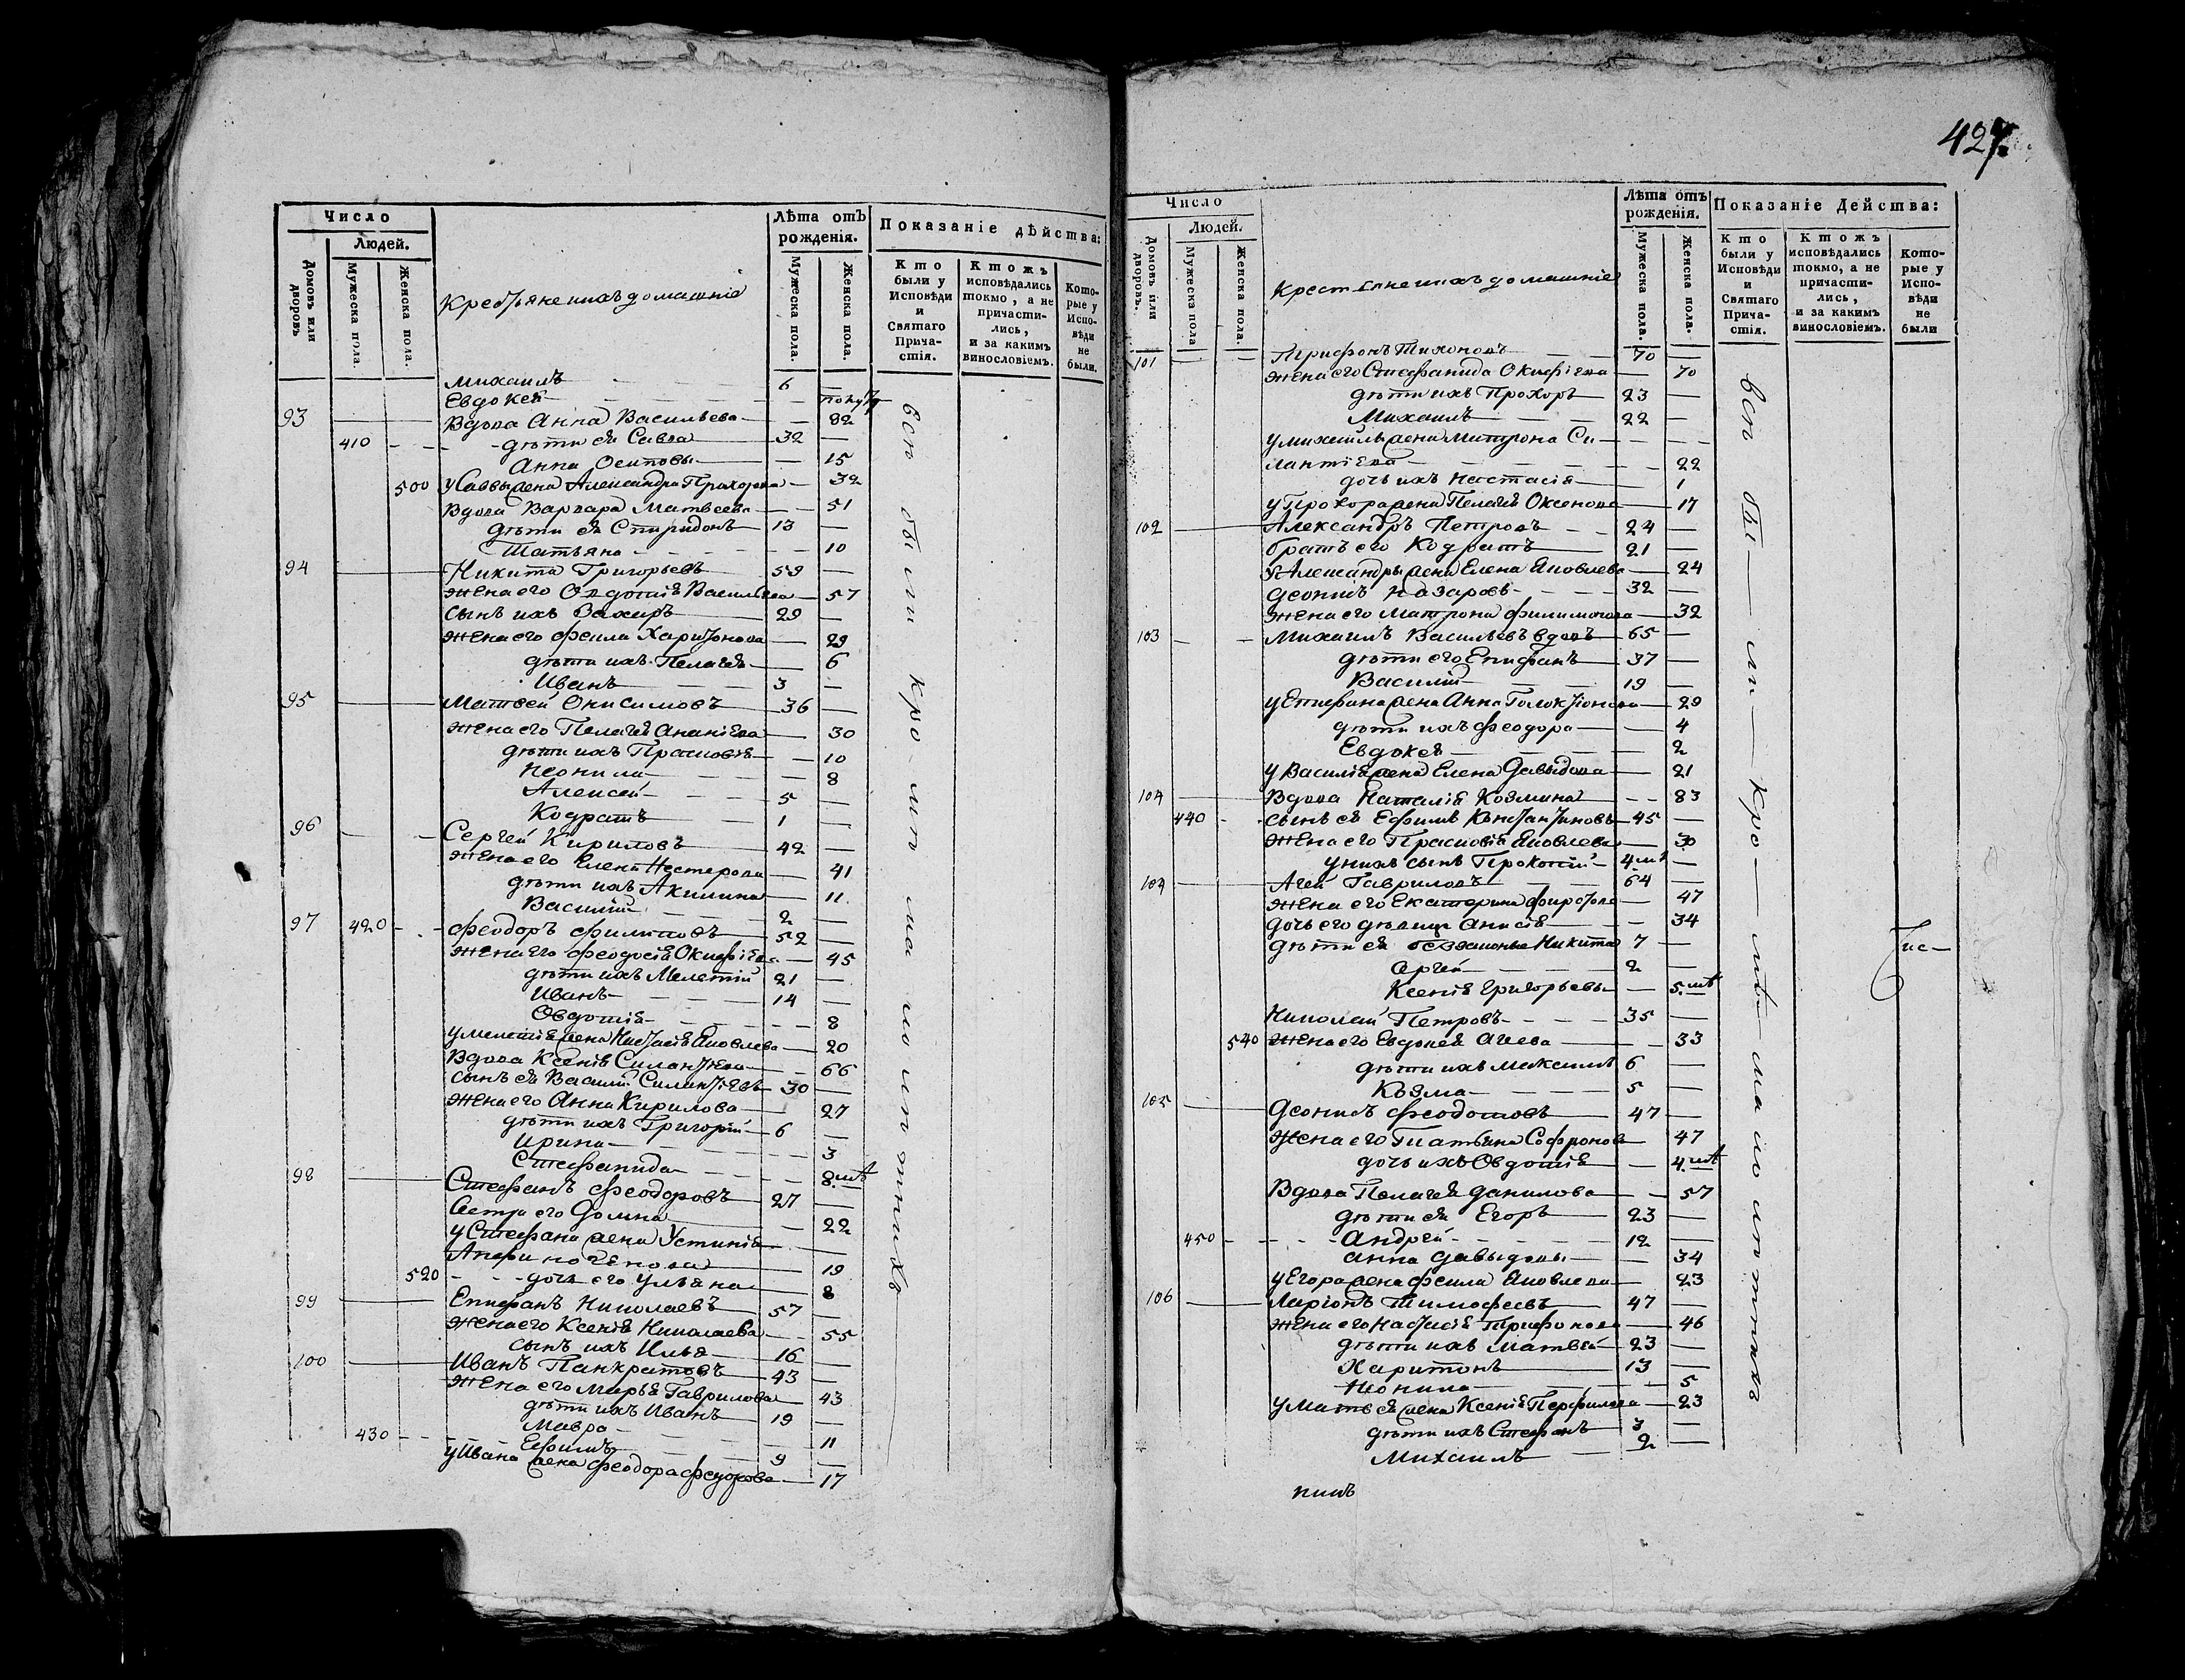 427.
Число
Людей.
Домовъ или дворовъ
Мужеска пола.
Женска пола.
Крестьяне и ихъ домашніе
Лѣта отъ рожденія.
Мужеска пола.
Женска пола.
Показаніе дѣйства:
Кто были у Исповѣди и Святаго Причастія.
Ктожъ исповѣдались токмо, а не причастились, и за какимъ винословіемъ.
Которые у Исповѣди не были.
Михаилъ 6
Евдокея
93 Вдова Анна Васильева 82
410 дѣти ея Савва 32
Анна Осиповы 15
500 у Саввы жена Александра Прохорова 32
Вдова Варвара Матвеева 51
дѣти ея Спиридонъ 13
Татьяна 10
94 Никита Григорьевъ 59
жена его Овдотія Васильева 57
сынъ ихъ Захаръ 29
жена его Фекла Харитонова 29
дѣти ихъ Пелагея 6
Иванъ 3
95 Матвей Онисимовъ 36
жена его Пелагея Ананіева 30
дѣти ихъ Прасковія 10
Неонила 8
Алексей 5
Кодратъ 1
96 Сергей Кириловъ 42
жена его Елена Нестерова 41
дѣти ихъ Акилина 11
Василій 2
97 420 Феодоръ Филиповъ 52
жена его Феодосія Окифіева 45
дѣти ихъ Мелетій 21
Иванъ 14
Овдотія 8
у Мелетія жена Настасія Яковлева 20
Вдова Ксенія Силантіева 66
сынъ ея Василій Силантіевъ 30
жена его Анна Кирилова 27
дѣти ихъ Григорій 6
Ирина 3
Стефанида 8 мѣ
98 Стефанъ Феодоровъ 27
Сестра его Домна 22
у Стефана жена Устинія
Анфиногенова 19
520 дочь его Ульяна 8
99 Епифанъ Николаевъ 57
жена его Ксенія Николаева 55
сынъ ихъ Илья 16
100 Иванъ Панкратовъ 43
жена его Марья Гаврилова 43
дѣти ихъ Иванъ 19
Мавра 11
430 Ефимъ 9
у Ивана жена Феодора Федорова 17
всѣ были кромѣ малолѣтнихъ
Число
Людей.
Домовъ или дворовъ.
Мужеска пола
Женска пола.
Крестьяне и ихъ домашніе
Лѣта отъ рожденія.
Мужеска пола.
Женска пола.
Показаніе Действа:
Кто были у Исповѣди и Святаго Причастія.
Ктожъ исповѣдались токмо, а не причастились, и за какимъ винословіемъ.
Которые у Исповѣди не были
101 Трифонъ Тихоновъ 70
жена его Стефанида Окифіева 70
дѣти ихъ Прохоръ 23
Михаилъ 22
у Михаила жена Матрона Си
лантіева 22
дочь ихъ Настасія 1
у Прохора жена Пелагея Оксенова 17
102 Александръ Петровъ 24
братъ его Кодратъ 21
у Александры жена Елена Яковлева 24
Леонтій Назаровъ 32
жена его Матрона Филимонова 32
103 Михаилъ Васильевъ вдовъ 65
дѣти его Епифанъ 37
Василій 19
у Епифана жена Анна Голокtіонова 29
дѣти ихъ Феодора 4
Евдокея 2
у Василія жена Елена Давыдова 21
104 Вдова Наталія Козмина 83
440 сынъ ея Ефимъ Константиновъ 45
жена его Прасковія Яковлева 30
у нихъ сынъ Прокопій 4 мѣ
104 Агей Гавриловъ 64
жена его Екатерина Фирсова 47
дочь его дѣвица Анисія 34
дѣти ея беззаконные Никита 7
Сергей 2
Ксенія Григорьевы 5 мѣ
Николай Петровъ 35
540 жена его Евдокея Агеева 33
дѣти ихъ Максимъ 6
Козма 5
105 Леонтій Феодотовъ 47
жена его Татьяна Софронова 47
дочь ихъ Овдотія 4 мѣ
Вдова Пелагея Данилова 57
дѣти ея Егоръ 23
450 Андрей 12
Анна Давыдовы 34
у Егора жена Фекла Яковлева 23
106 Ларіонъ Тимофеевъ 47
жена его Настасія Трифонова 46
дѣти ихъ Матвей 23
Харитонъ 13
Неонила 5
у Матвея жена Ксенія Перфилева 23
дѣти ихъ Стефанъ 3
Михаилъ 2
всѣ были кромѣ малолѣтнихъ